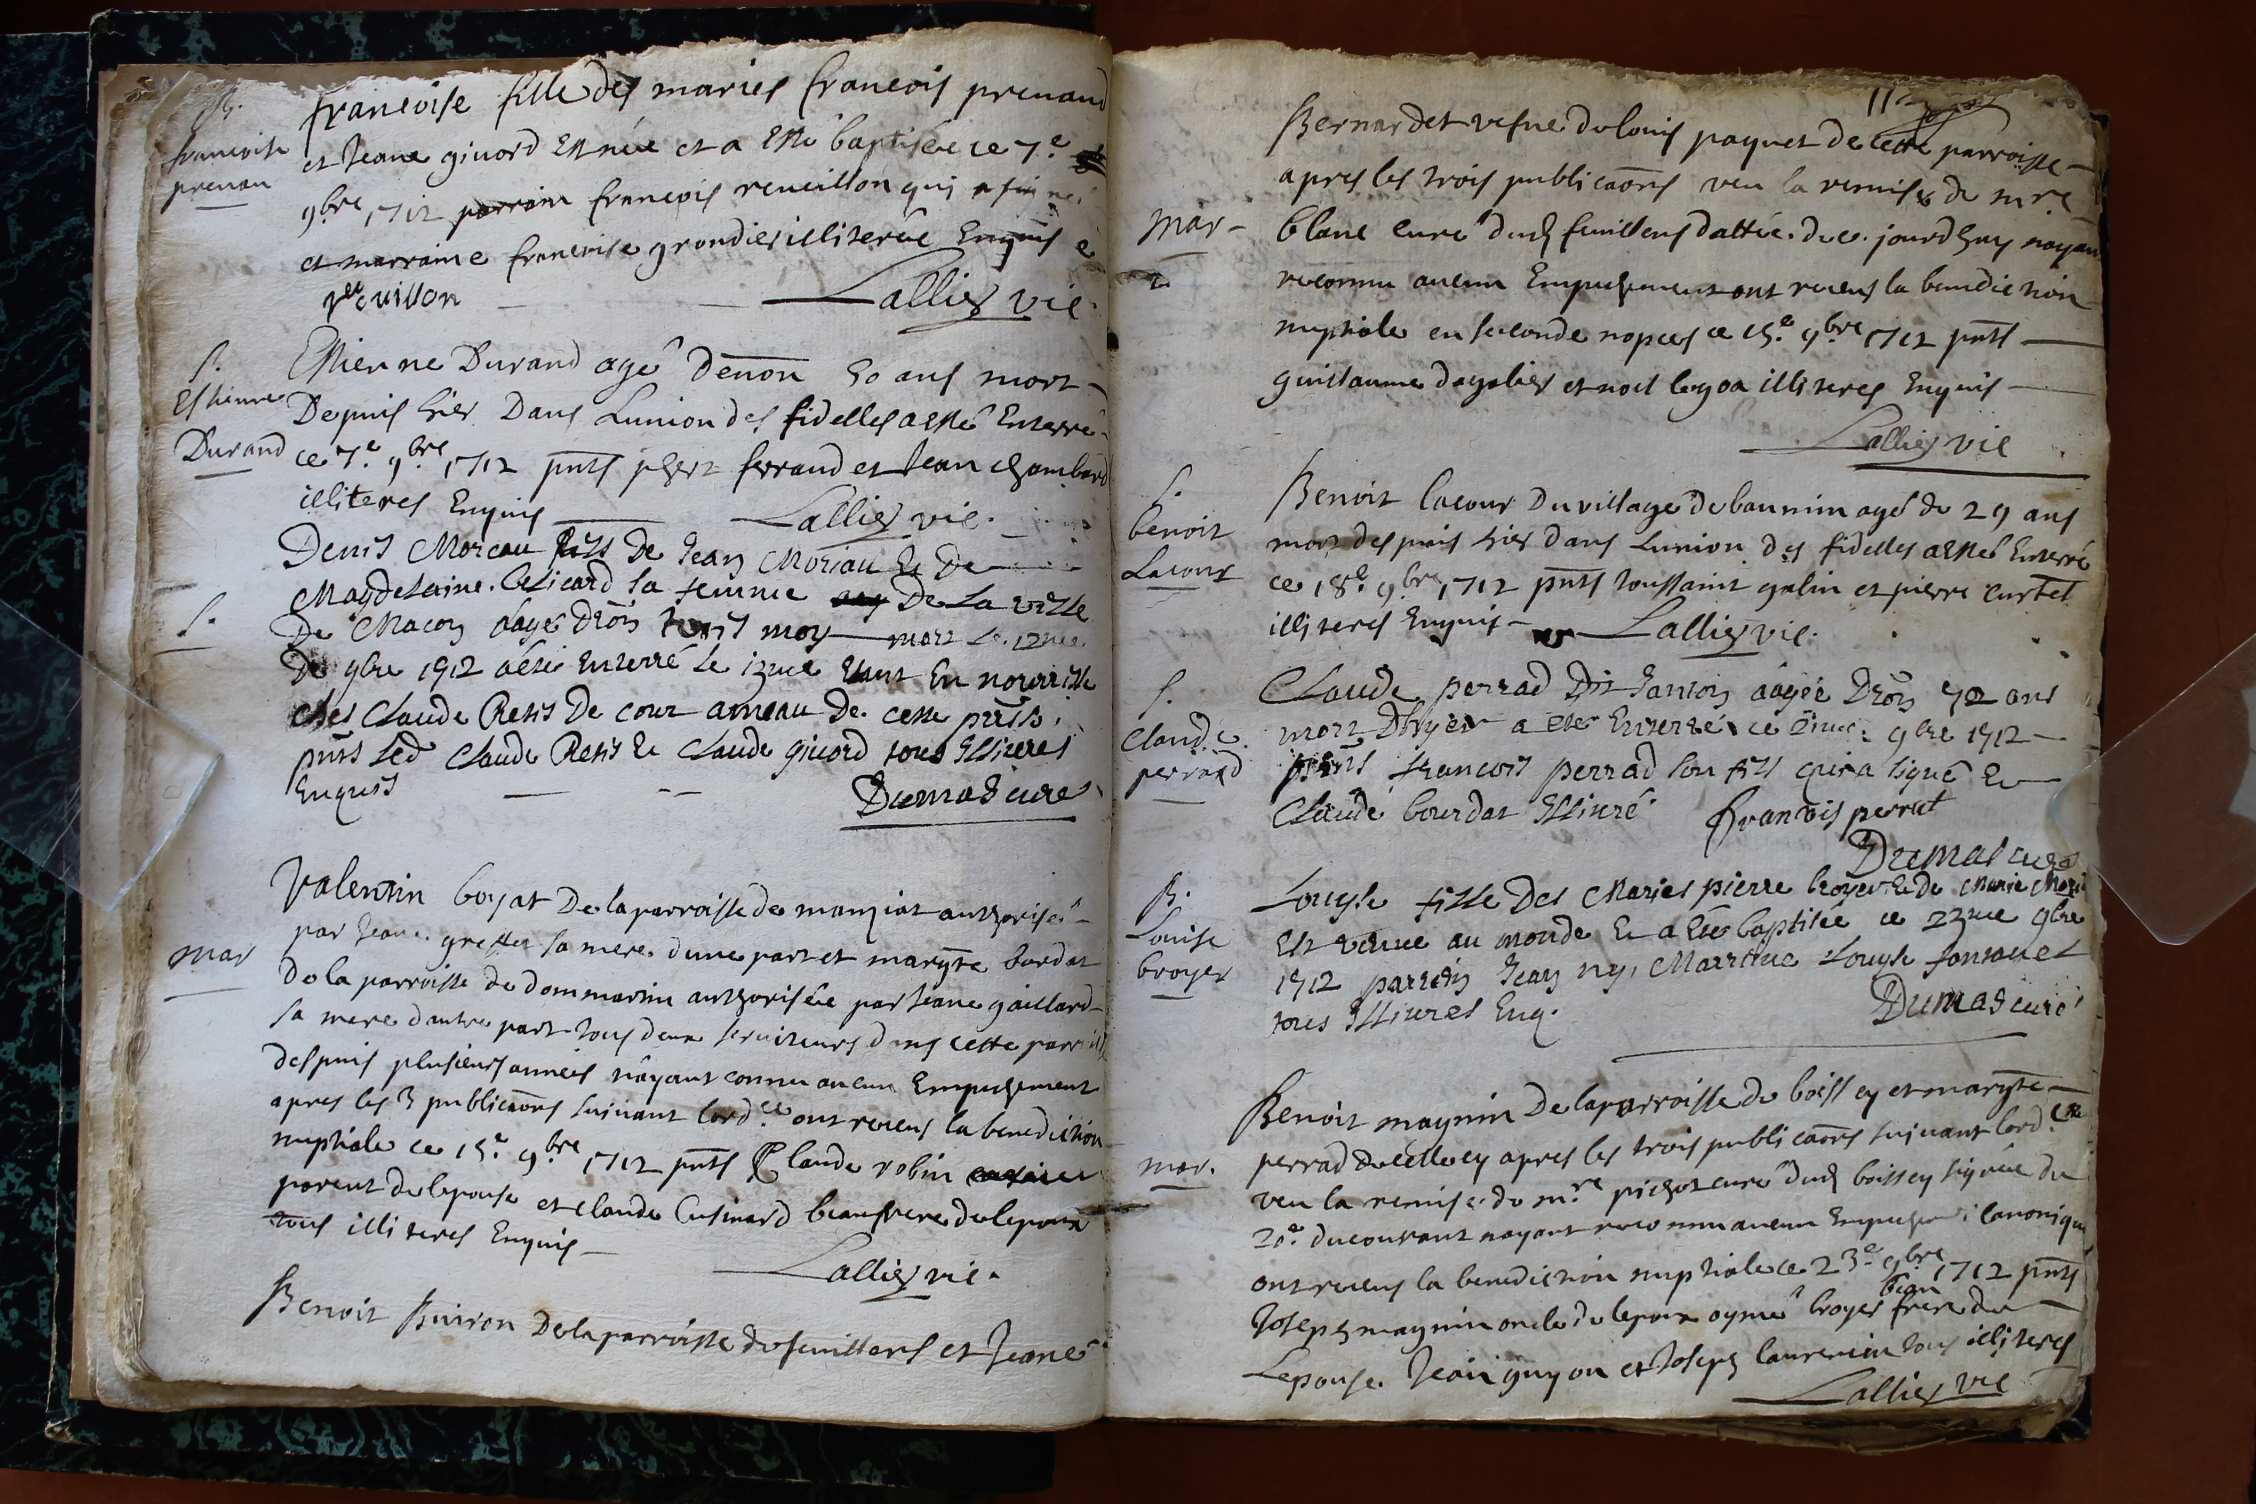 B.
francoise
prenau
francoise fille des maries francois prenaud
et Jeane givord Est née et a esté baptisée ce 7e
9bre 1712 parrain francois reveillon qui a signé
et marraine francoise grondier illiterée Enquis
reveillon
Lallier vic.
S.
Estienne
Durand
Estienne Durand agé denon 50 ans mort
Depuis hier Dans Lunion des fidelles a esté Enterré
ce 7e 9bre 1712 pnts phert ferraud et Jean chambard
illiteres Enquis
Lallier vic.
S.
Denis Moreau fils De Jean Moriau Et De
Magdelaine Belicard sa femme De La ville
De Macon aagé Dron trois moy mort Le 12me
De 9bre 1712 a esté Enterré Le 13me Etant En nourrisse
Ches Claude Retis De cour ameau De cette prsse
pnts Led Claude Retis Et Claude givord tous Illiteres
Enquis
Dumas curé
mar
Valentin boyat De la parroisse de manziat authorisé
par Jeane greffet sa mere dune part et margte bardat
De la parroisse de dommartin authorisée par Jeane gaillard
sa mere dautre part tous deux serviteurs dans cette parroisse
despuis plusieurs années nayant connu aucun Empechement
apres les 3 publicaons suivant lordce ont receus la benediction
nuptiale ce 15e 9bre 1712 pnts Claude robin
parent de lepouse et claude Cusinard beaufrere de lepoux
tous illiteres Enquis
Lallier vic.
Benoit Buiron De la parroisse de feuillens et Jeane
112
mar
Bernardet vefve de louis paquet de cette parroisse
apres les trois publicaons veu la remise de mre
blanc curé dud feuillens dattée de ce jourdhuy nayant
reconnu aucun Empechement ont receus la benediction
nuptiale en seconde nopces ce 15e 9bre 1712 pnts
guillaume dagalier et noel legoa illiteres Enquis
Lallier vic
S.
benoit
Lacour
Benoit lacour Du village de baumin agé de 29 ans
mort despuis hier dans Lunion des fidelles a esté Enterré
ce 18e 9bre 1712 pnts toussaint galin et pierre curtet
illiteres Enquis
Lallier vic.
S.
Claude
perrad
Claude perrad Dit Janton aagée Dron 70 ans
mort Dhyer a eté Enterré ce 9bre 1712
pnts francois perrad son fils qui a signé Et
Claude bourdat Illiteré
francois perrat
Dumas curé
B.
Louise
broyer
Louyse fille Des Maries pierre broyer Et de Marie
Est venue au monde Et a Eté baptisée ce 23me 9bre
1712 parrein Jean ny, Marrine Louyse fontanel
tous Illiteres Enq.
Dumas curé
mar.
Benoit magnin De la parroisse de boissey et margte
perrad de cette cy apres les trois publicaons suivant lordce
veu la remise de mre pichot curé dud boissey signée du
20e du courant nayant reconnu aucun Empechement canonique
ont receus la benediction nuptiale ce 23e 9bre 1712 pnts
Joseph magnin oncle de lepoux aymé broyer beau frere de
Lepouse Jean guyon et Joseph laurencin tous illiteres
Lallier vic